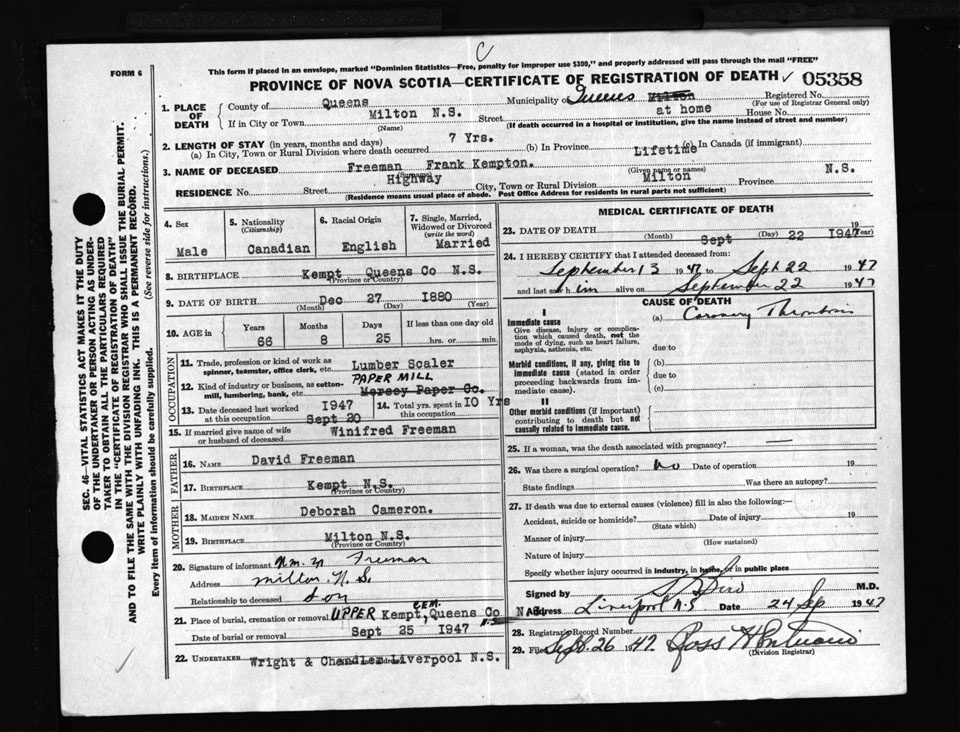 C
This form if placed in an envelope, marked "Dominion Statistics—Free, penalty for improper use $300," and properly addressed will pass through the mail "FREE"
FORM 6
PROVINCE OF NOVA SCOTIA—CERTIFICATE OF REGISTRATION OF DEATH ✓ 05358
1. PLACE OF DEATH
County of Queens Municipality of Queens Milton Registered No.
(For use of Registrar General only)
If in City or Town Milton N.S. Street at home House No.
(Name) (If death occurred in a hospital or institution, give the name instead of street and number)
2. LENGTH OF STAY (in years, months and days)
(a) In City, Town or Rural Division where death occurred 7 Yrs. (b) In Province Lifetime (c) In Canada (if immigrant)
3. NAME OF DECEASED Freeman Frank Kempton.
(Surname) (Given name or names)
RESIDENCE No. Street Highway City, Town or Rural Division Milton Province N.S.
(Residence means usual place of abode. Post Office Address for residents in rural parts not sufficient)
4. Sex
Male
5. Nationality
(Citizenship)
Canadian
6. Racial Origin
English
7. Single, Married, Widowed or Divorced
(write the word)
Married
8. BIRTHPLACE Kempt Queens Co N.S.
(Province or Country)
9. DATE OF BIRTH Dec 27 1880
(Month) (Day) (Year)
10. AGE in
Years Months Days If less than one day old
66 8 25 hrs. or min.
OCCUPATION
11. Trade, profession or kind of work as spinner, teamster, office clerk, etc. Lumber Scaler
12. Kind of industry or business, as cotton-mill, lumbering, bank, etc. PAPER MILL
Mersey Paper Co.
13. Date deceased last worked at this occupation 1947 Sept 20
14. Total yrs. spent in this occupation 10 Yrs
15. If married give name of wife or husband of deceased Winifred Freeman
FATHER
16. NAME David Freeman
17. BIRTHPLACE Kempt N.S.
(Province or Country)
MOTHER
18. MAIDEN NAME Deborah Cameron.
19. BIRTHPLACE Milton N.S.
(Province or Country)
20. Signature of informant Freeman
Address Milton N.S.
Relationship to deceased Son
21. Place of burial, cremation or removal UPPER Kempt, CEM. Queens Co N.S.
Date of burial or removal Sept 25 1947
22. UNDERTAKER Wright & Chandler Liverpool N.S.
MEDICAL CERTIFICATE OF DEATH
23. DATE OF DEATH Sept 22 1947
(Month) (Day) (Year)
24. I HEREBY CERTIFY that I attended deceased from:
September 13 1947 to Sept 22 1947
and last saw him alive on September 22 1947
CAUSE OF DEATH
I
Immediate cause
Give disease, injury or complication which caused death, not the mode of dying, such as heart failure, asphyxia, asthenia, etc.
(a) Coronary Thrombosis
due to
Morbid conditions, if any, giving rise to immediate cause (stated in order proceeding backwards from immediate cause).
(b)
due to
(c)
II
Other morbid conditions (if important) contributing to death but not causally related to immediate cause.
25. If a woman, was the death associated with pregnancy? —
26. Was there a surgical operation? no Date of operation 19
State findings Was there an autopsy?
27. If death was due to external causes (violence) fill in also the following:— —
Accident, suicide or homicide? Date of injury 19
(State which)
Manner of injury
(How sustained)
Nature of injury
Specify whether injury occurred in industry, in home, or in public place
Signed by M.D.
Address Liverpool N.S Date 24 Sep 1947
28. Registrar's Record Number
29. Filed Sept. 26 1947 Ross
(Division Registrar)
SEC. 46—VITAL STATISTICS ACT MAKES IT THE DUTY
OF THE UNDERTAKER OR PERSON ACTING AS UNDER-
TAKER TO OBTAIN ALL THE PARTICULARS REQUIRED
IN THE "CERTIFICATE OF REGISTRATION OF DEATH"
AND TO FILE THE SAME WITH THE DIVISION REGISTRAR WHO SHALL ISSUE THE BURIAL PERMIT.
WRITE PLAINLY WITH UNFADING INK. THIS IS A PERMANENT RECORD.
Every item of information should be carefully supplied. (See reverse side for instructions.)